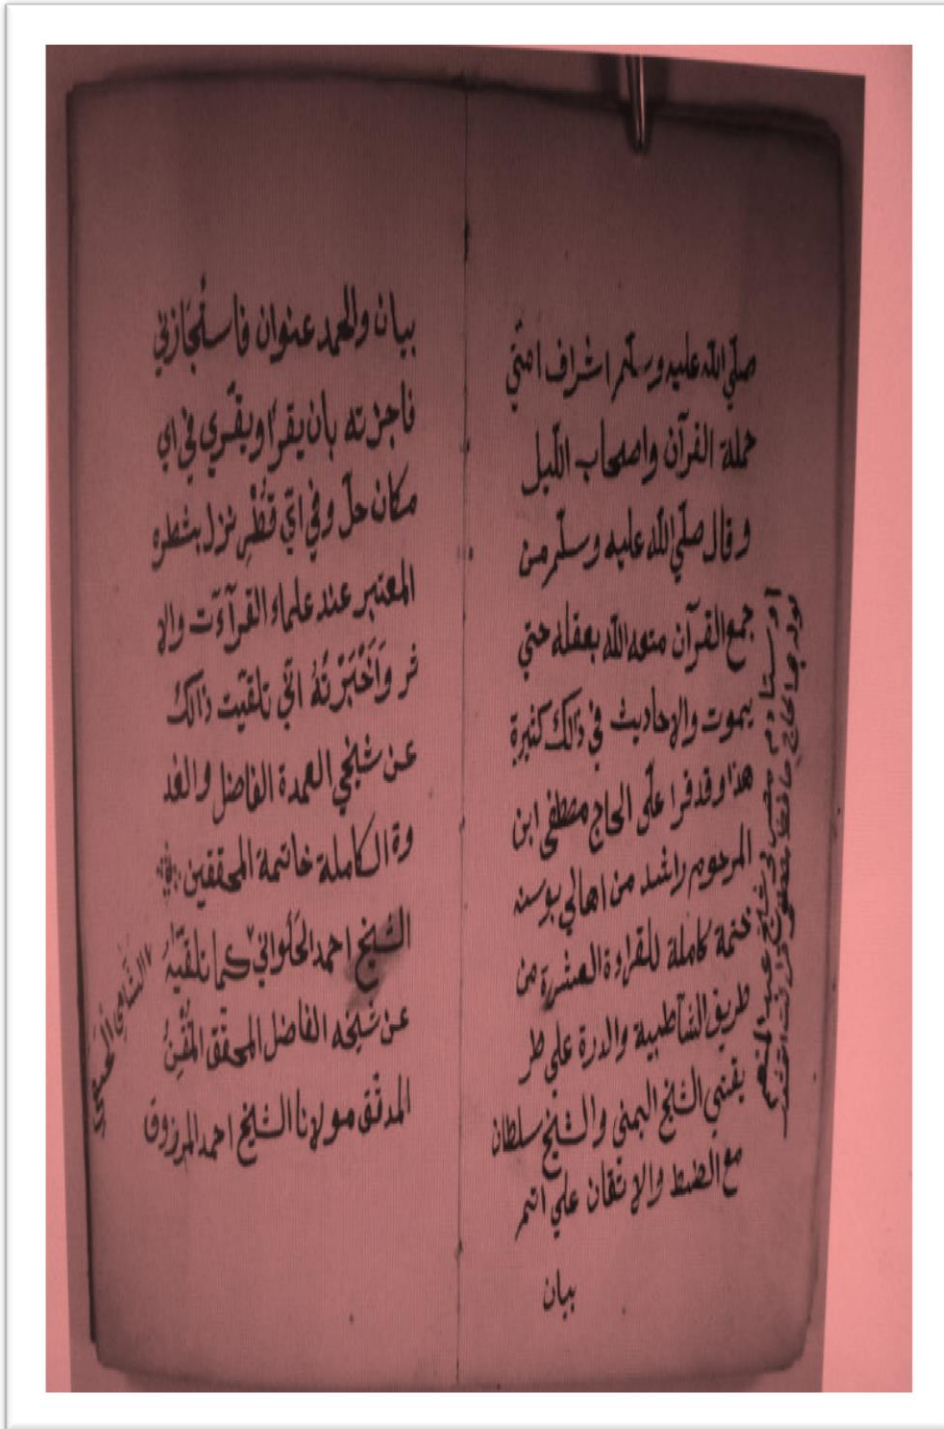 صلّي اللّه عليه وسلّم اشراف امتّي
حملة القرآن واصحاب اللّيل
وقال صلّي اللّه عليه وسلّم من
جمع القرآن متعه اللّه بعقله حتي
يموت والاحاديث في ذالك كثيرة
هذا وقد قرا علّى الحاج مصطفى ابن
المرحوم راشد من اهالي بوسنه
ختمة كاملة للقراءة العشرة من
طريق الشّاطبية والدرة علي طر
يقتي الشّيخ اليمني والشّيخ سلطان
مع الضبط والاتقان علي اتم
بيان
بيان والحمد عنوان فاستجازني
فاجزته بان يقرا ويقري في اي
مكان حلّ وفي ايّ قُطْرٍ نزل بشطره
المعتبر عند علماء القرآءت والا
ثر وَاَخْبَرْتُهُ انّي تلقّيت ذالك
عن شيخي العمدة الفاضل والقد
وة الكاملة خاتمة المحققين
الشّيخ احمد الحَلَواني كما تلقّيه
عن شيخه الفاضل المحقّق المُتْقِنُ
المدقّق مولانا الشّيخ احمد المرزوق